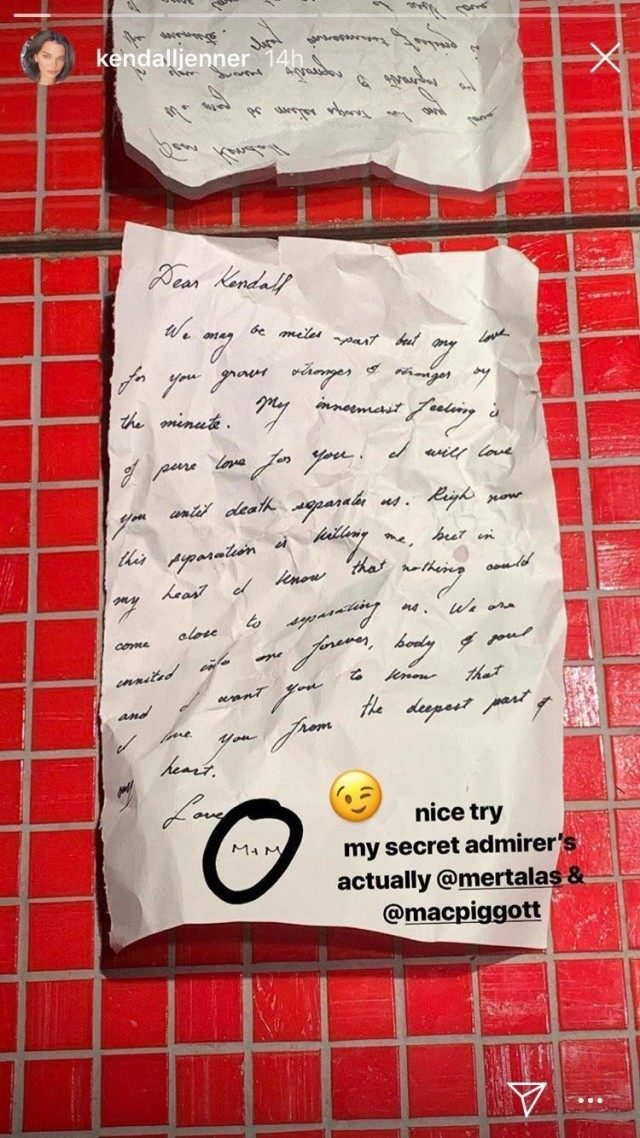 kendalljenner 14h
Dear Kendall
We may be miles apart but my love
for you grows stronger & stronger by
the minute. My innermost feeling is
of pure love for you. I will love
you until death separates us. Righ now
this siparation is killing me, but in
my heart I know that nothing could
come close to separating us. We are
unnited into one forever, body & soul
and I want you to know that
I love you from the deepest part of
my heart.
Love
M+M
😉 nice try
my secret admirer's
actually @mertalas &
@macpiggott